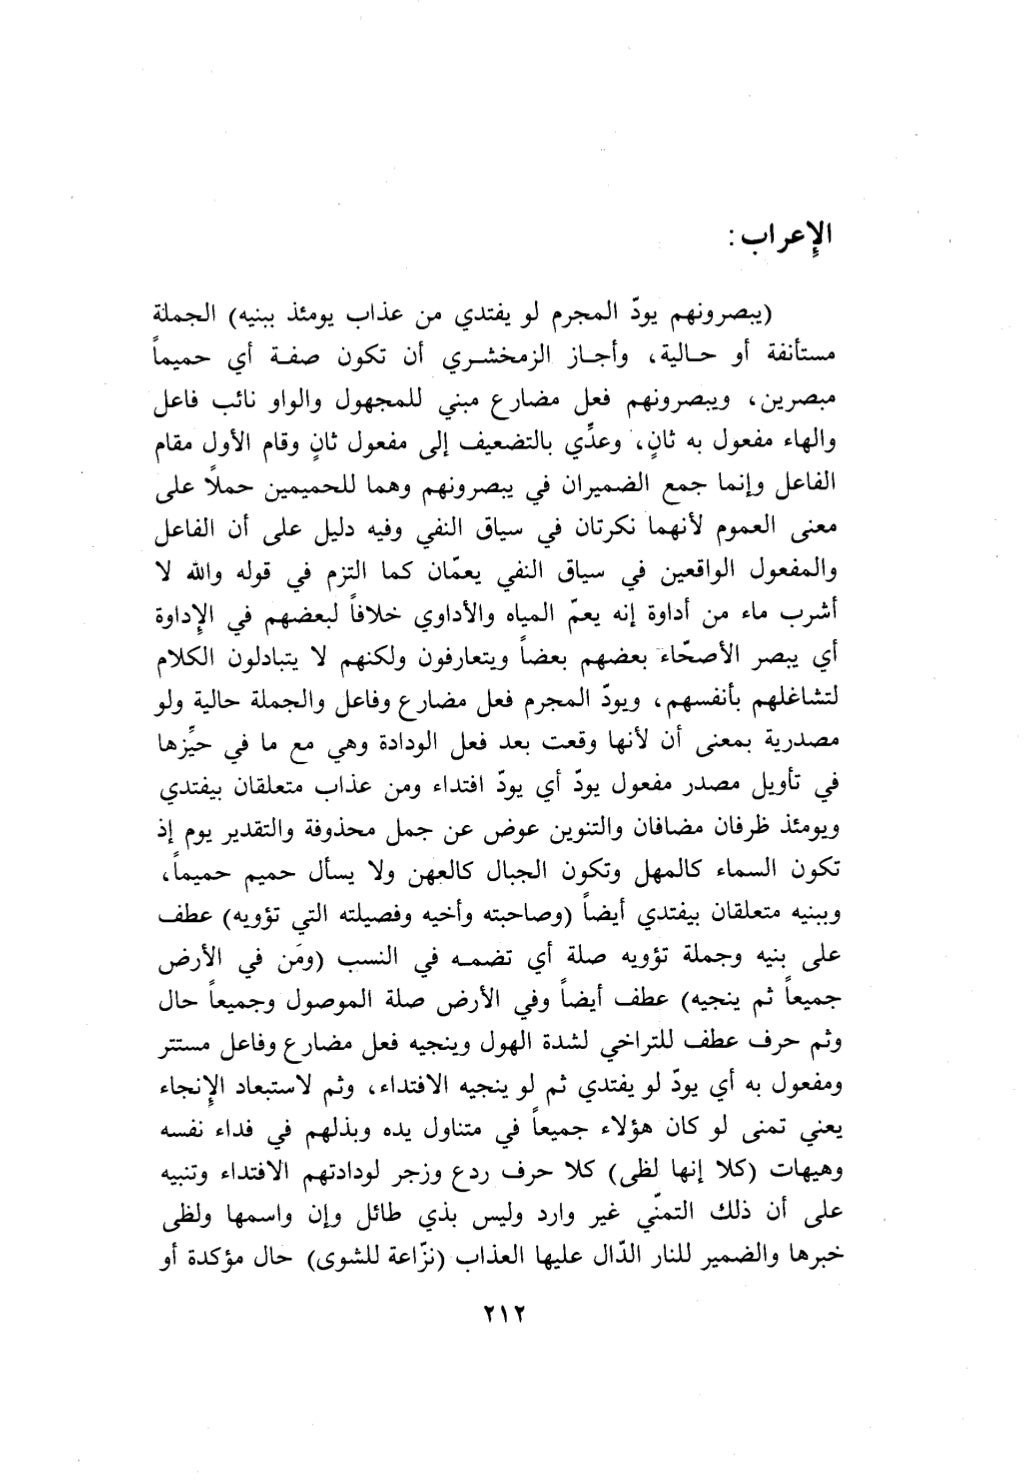 الإعراب :
(يبصرونهم يودّ المجرم لو يفتدي من عذاب يومئذ ببنيه) الجملة
مستأنفة أو حالية، وأجاز الزمخشري أن تكون صفة أي حميماً
مبصرين، ويبصرونهم فعل مضارع مبني للمجهول والواو نائب فاعل
والهاء مفعول به ثانٍ، وعدِّي بالتضعيف إلى مفعول ثانٍ وقام الأول مقام
الفاعل وإنما جمع الضميران في يبصرونهم وهما للحميمين حملًا على
معنى العموم لأنهما نكرتان في سياق النفي وفيه دليل على أن الفاعل
والمفعول الواقعين في سياق النفي يعمّان كما التزم في قوله والله لا
أشرب ماء من أداوة إنه يعمّ المياه والأداوي خلافاً لبعضهم في الإداوة
أي يبصر الأصحّاء بعضهم بعضاً ويتعارفون ولكنهم لا يتبادلون الكلام
لتشاغلهم بأنفسهم، ويودّ المجرم فعل مضارع وفاعل والجملة حالية ولو
مصدرية بمعنى أن لأنها وقعت بعد فعل الودادة وهي مع ما في حيِّزها
في تأويل مصدر مفعول يودّ أي يودّ افتداء ومن عذاب متعلقان بيفتدي
ويومئذ ظرفان مضافان والتنوين عوض عن جمل محذوفة والتقدير يوم إذ
تكون السماء كالمهل وتكون الجبال كالعهن ولا يسأل حميم حميماً،
وببنيه متعلقان بيفتدي أيضاً (وصاحبته وأخيه وفصيلته التي تؤويه) عطف
على بنيه وجملة تؤويه صلة أي تضمه في النسب (ومَن في الأرض
جميعاً ثم ينجيه) عطف أيضاً وفي الأرض صلة الموصول وجميعاً حال
وثم حرف عطف للتراخي لشدة الهول وينجيه فعل مضارع وفاعل مستتر
ومفعول به أي يودّ لو يفتدي ثم لو ينجيه الافتداء، وثم لاستبعاد الإنجاء
يعني تمنى لو كان هؤلاء جميعاً في متناول يده وبذلهم في فداء نفسه
وهيهات (كلا إنها لظى) كلا حرف ردع وزجر لودادتهم الافتداء وتنبيه
على أن ذلك التمنّي غير وارد وليس بذي طائل وإن واسمها ولظى
خبرها والضمير للنار الدّال عليها العذاب (نزّاعة للشوى) حال مؤكدة أو
٢١٢